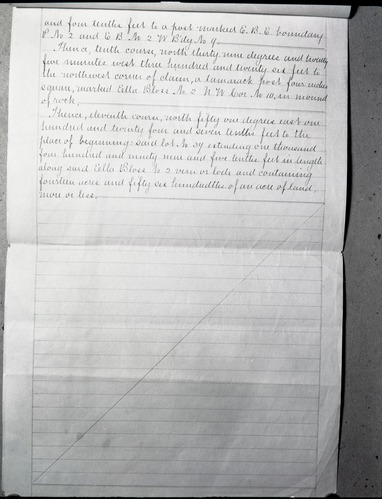 and four tenths feet to a post marked E. B. E. boundary
P. No 2 and E B. No 2 W B'dy No 9.
Thence, tenth course, north thirty nine degrees and twenty
five minutes west three hundred and twenty six feet to
the northwest corner of claim, a tamarack post four inches
square, marked Ella Bloss No 2 N. W Cor. No 10, in mound
of rock.
Thence, eleventh course, north fifty one degrees east one
hundred and twenty four and seven tenths feet to the
place of beginning: said lot No 39 extending one thousand
four hundred and ninety nine and five tenths feet in length
along said Ella Bloss No 2 vein or lode and containing
fourteen acres and fifty six hundredths of an acre of land,
more or less.